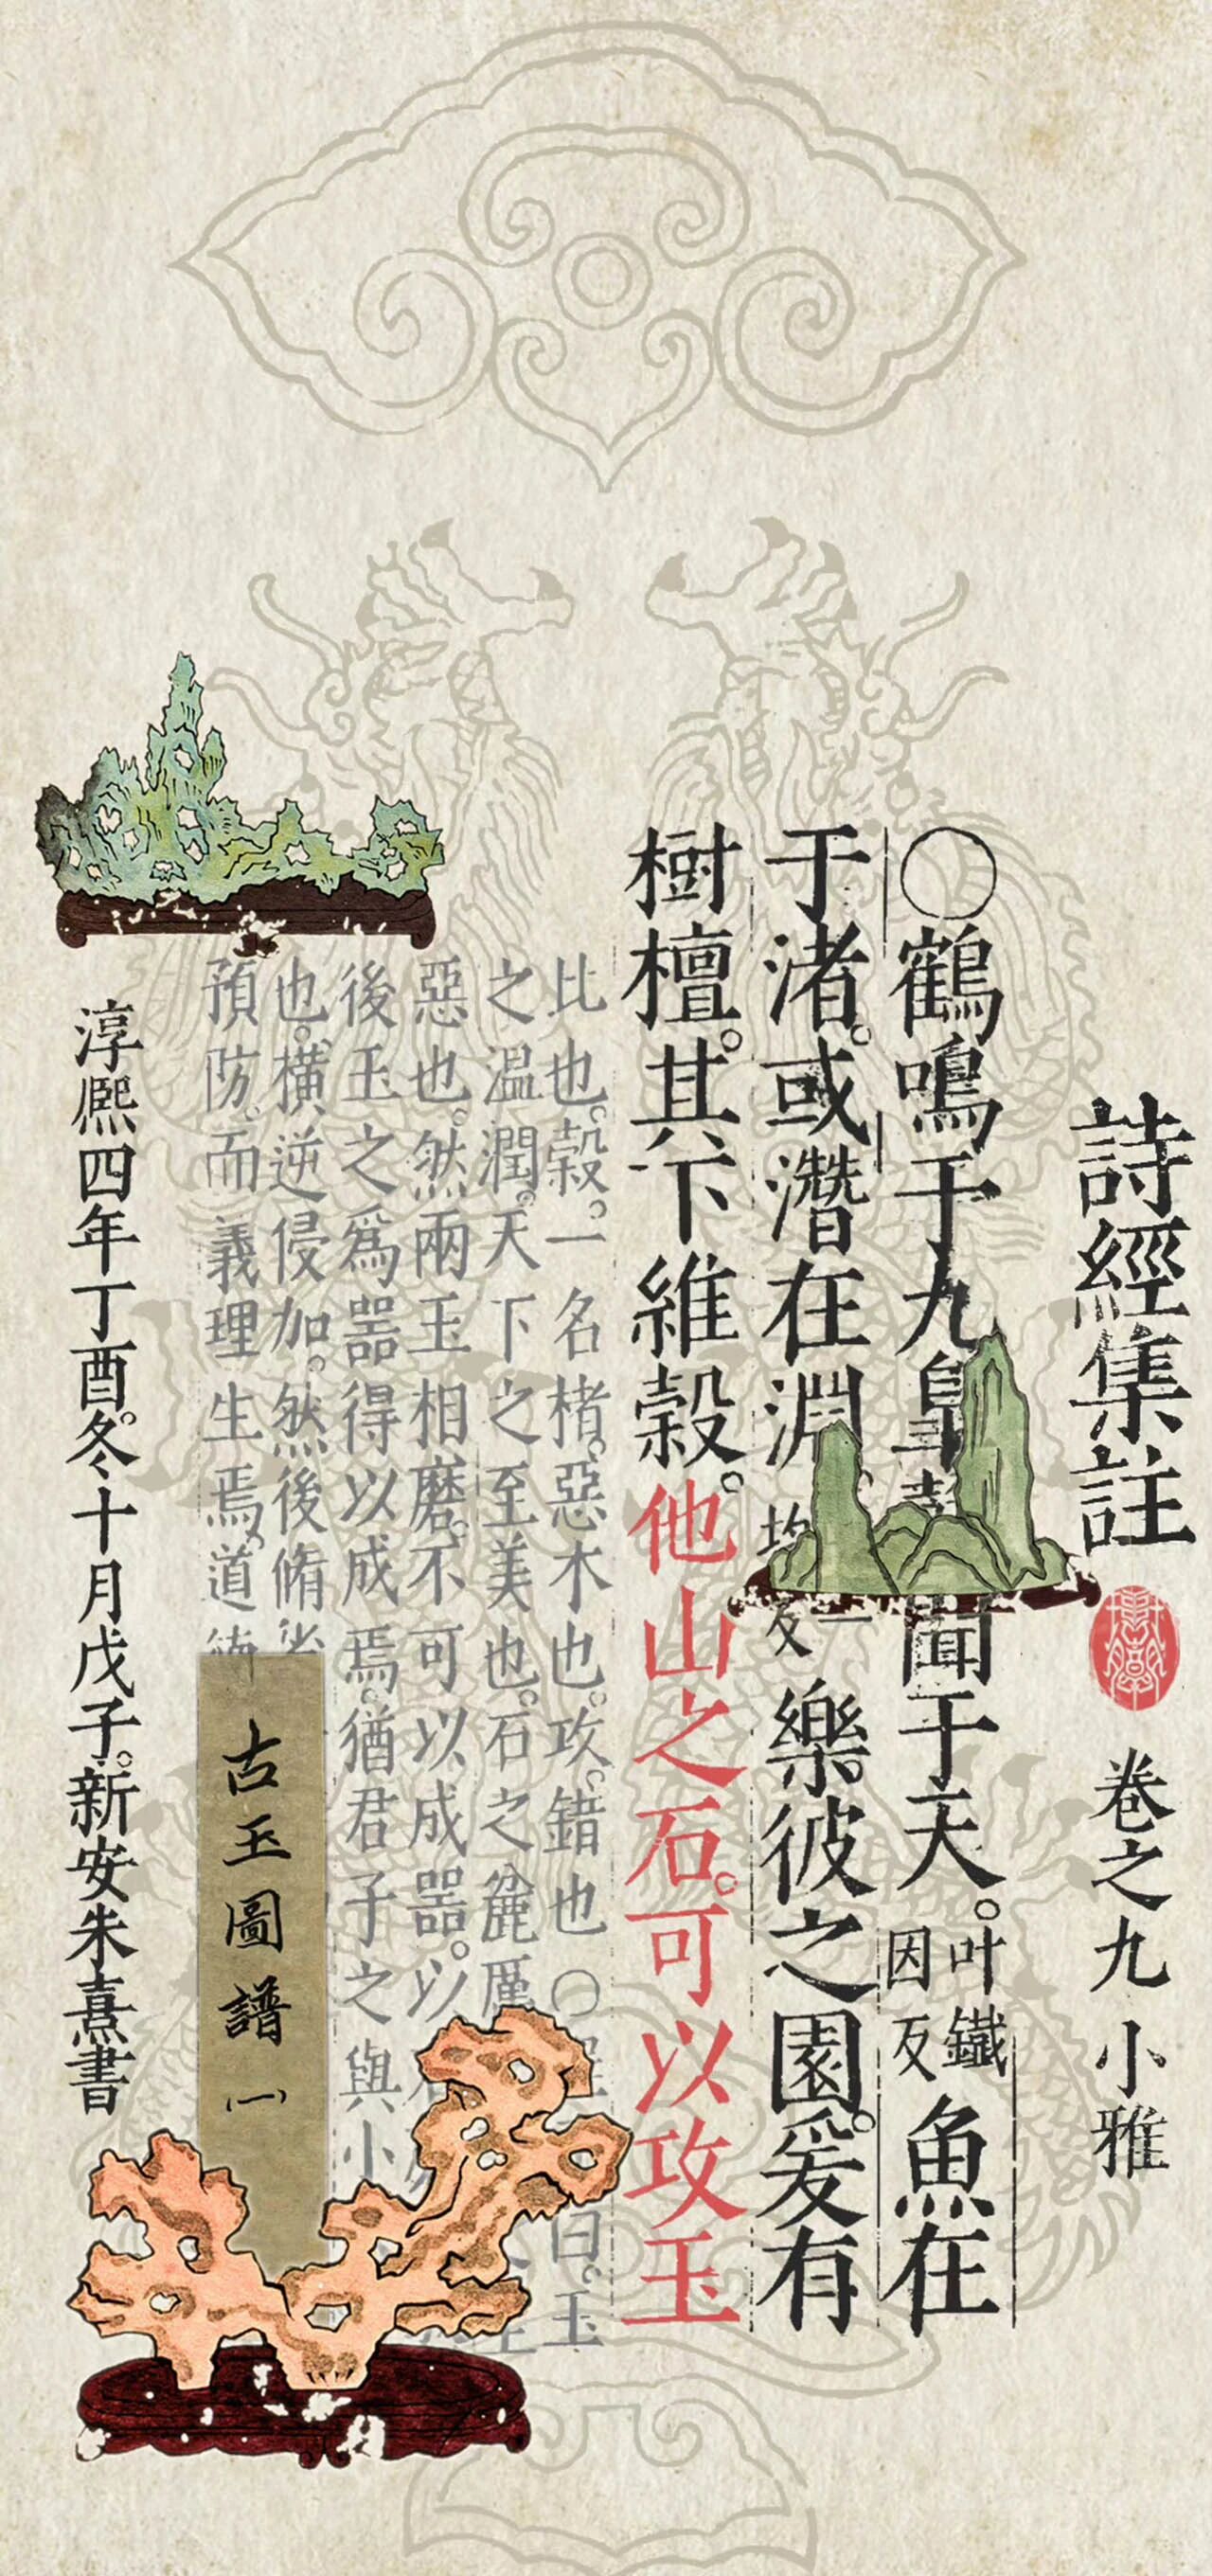 詩經集註
卷之九 小雅
〇鶴鳴于九皐聞于天。叶鐵因反魚在
于渚。或潛在淵均反一樂彼之園。爰有
樹檀。其下維穀。他山之石。可以攻玉
比也。穀。一名楮。惡木也。攻。錯也〇曰。玉
之温潤。天下之至美也。石之麄厲
惡也。然兩玉相磨。不可以成器。以
後玉之爲器得以成焉。猶君子之與小
也。橫逆侵加。然後脩省
預防。而義理生焉。道德
古玉圖譜 一
淳熙四年丁酉。冬十月戊子。新安朱熹書